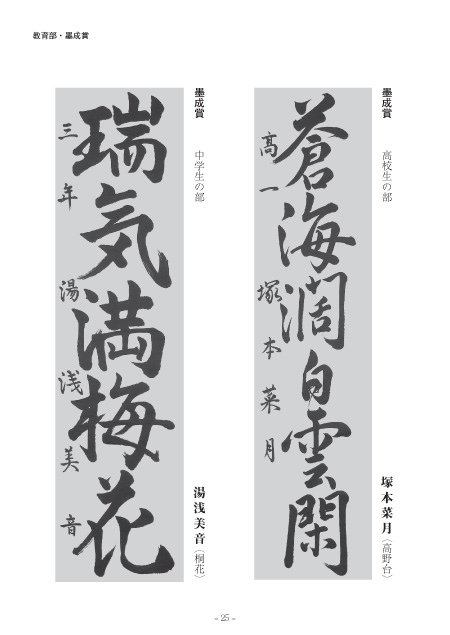 教育部・墨成賞
墨成賞 高校生の部
塚本菜月〈高野台〉
蒼海濶白雲閑
高一 塚本菜月
墨成賞 中学生の部
湯浅美音〈桐花〉
瑞気満梅花
三年 湯浅美音
- 25 -